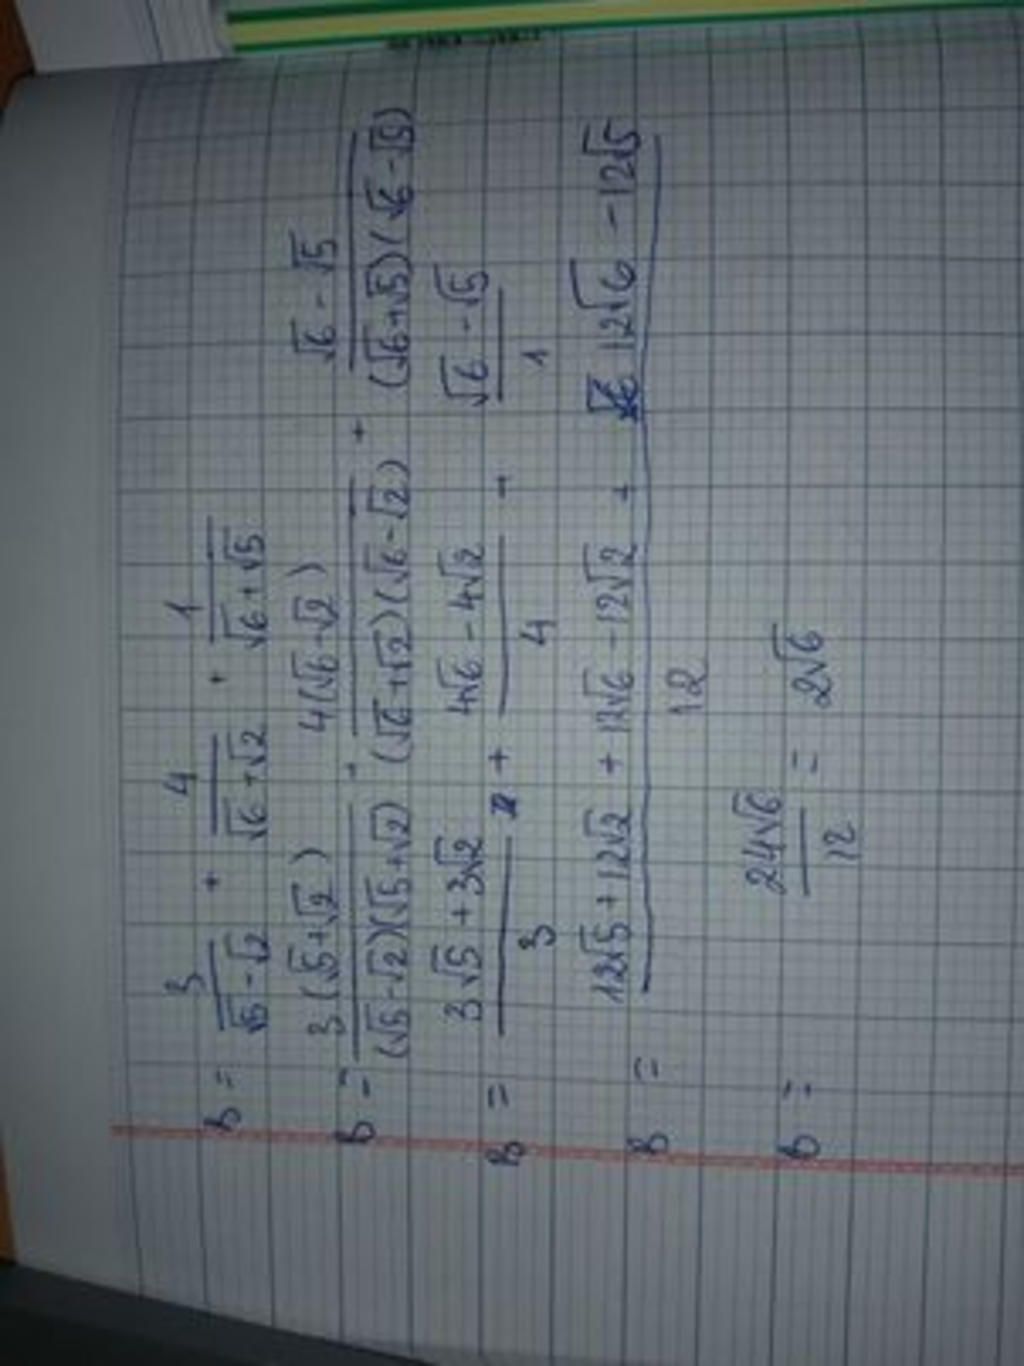 B = 3/(√5-√2) + 4/(√6+√2) + 1/(√6+√5)
B = 3(√5+√2)/((√5-√2)(√5+√2)) + 4(√6-√2)/((√6+√2)(√6-√2)) + (√6-√5)/((√6+√5)(√6-√5))
B = (3√5+3√2)/3 + (4√6-4√2)/4 + (√6-√5)/1
B = (12√5+12√2+12√6-12√2+12√6-12√5)/12
B = 24√6/12 = 2√6